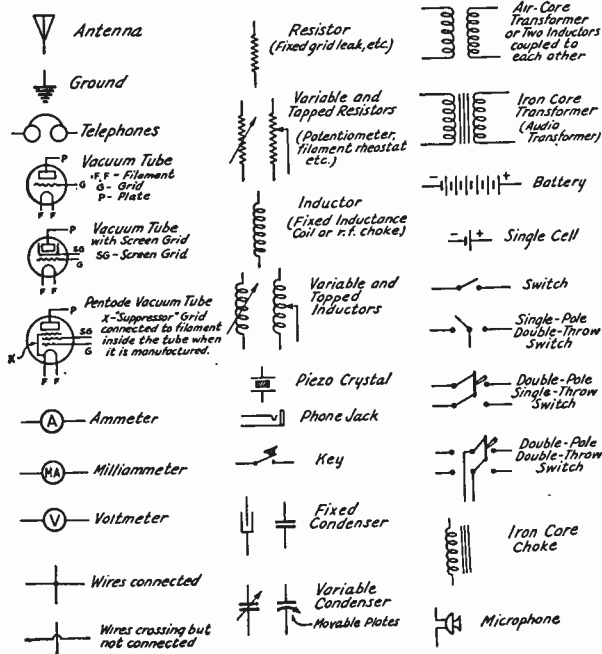 Antenna
Ground
Telephones
P
G
F F
Vacuum Tube
F.F - Filament
G - Grid
P - Plate
P
SG
G
F F
Vacuum Tube
with Screen Grid
SG - Screen Grid
P
SG
G
X
F F
Pentode Vacuum Tube
X-"Suppressor" Grid
connected to filament
inside the tube when
it is manufactured.
A
Ammeter
MA
Milliammeter
V
Voltmeter
Wires connected
Wires crossing but
not connected
Resistor
(Fixed grid leak, etc.)
Variable and
Tapped Resistors
(Potentiometer,
filament rheostat
etc.)
Inductor
(Fixed Inductance
Coil or r.f. choke)
Variable and
Tapped
Inductors
Piezo Crystal
Phone Jack
Key
Fixed
Condenser
Variable
Condenser
Movable Plates
Air-Core
Transformer
or Two Inductors
coupled to
each other
Iron Core
Transformer
(Audio
Transformer)
- +
Battery
- +
Single Cell
Switch
Single-Pole
Double-Throw
Switch
Double-Pole
Single-Throw
Switch
Double-Pole
Double-Throw
Switch
Iron Core
Choke
Microphone